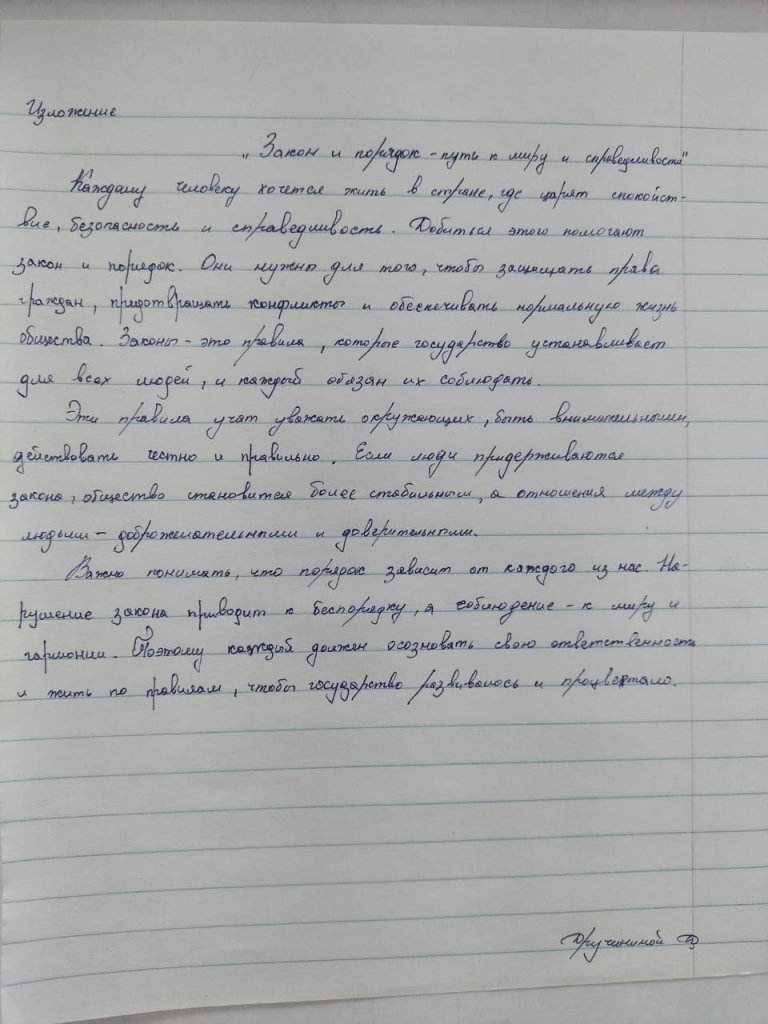 Изложение
„Закон и порядок - путь к миру и справедливости"
Каждому человеку хочется жить в стране, где царят спокойст-
вие, безопасность и справедливость. Добиться этого помогают
закон и порядок. Они нужны для того, чтобы защищать права
граждан, предотвращать конфликты и обеспечивать нормальную жизнь
общества. Законы - это правила, которые государство устанавливает
для всех людей, и каждый обязан их соблюдать.
Эти правила учат уважать окружающих, быть внимательными,
действовать честно и правильно. Если люди придерживаются
закона, общество становится более стабильным, а отношения между
людьми - доброжелательными и доверительными.
Важно понимать, что порядок зависит от каждого из нас. На-
рушение закона приводит к беспорядку, а соблюдение - к миру и
гармонии. Поэтому каждый должен осозновать свою ответственность
и жить по правилам, чтобы государство развивалось и процветало.
Дружининой